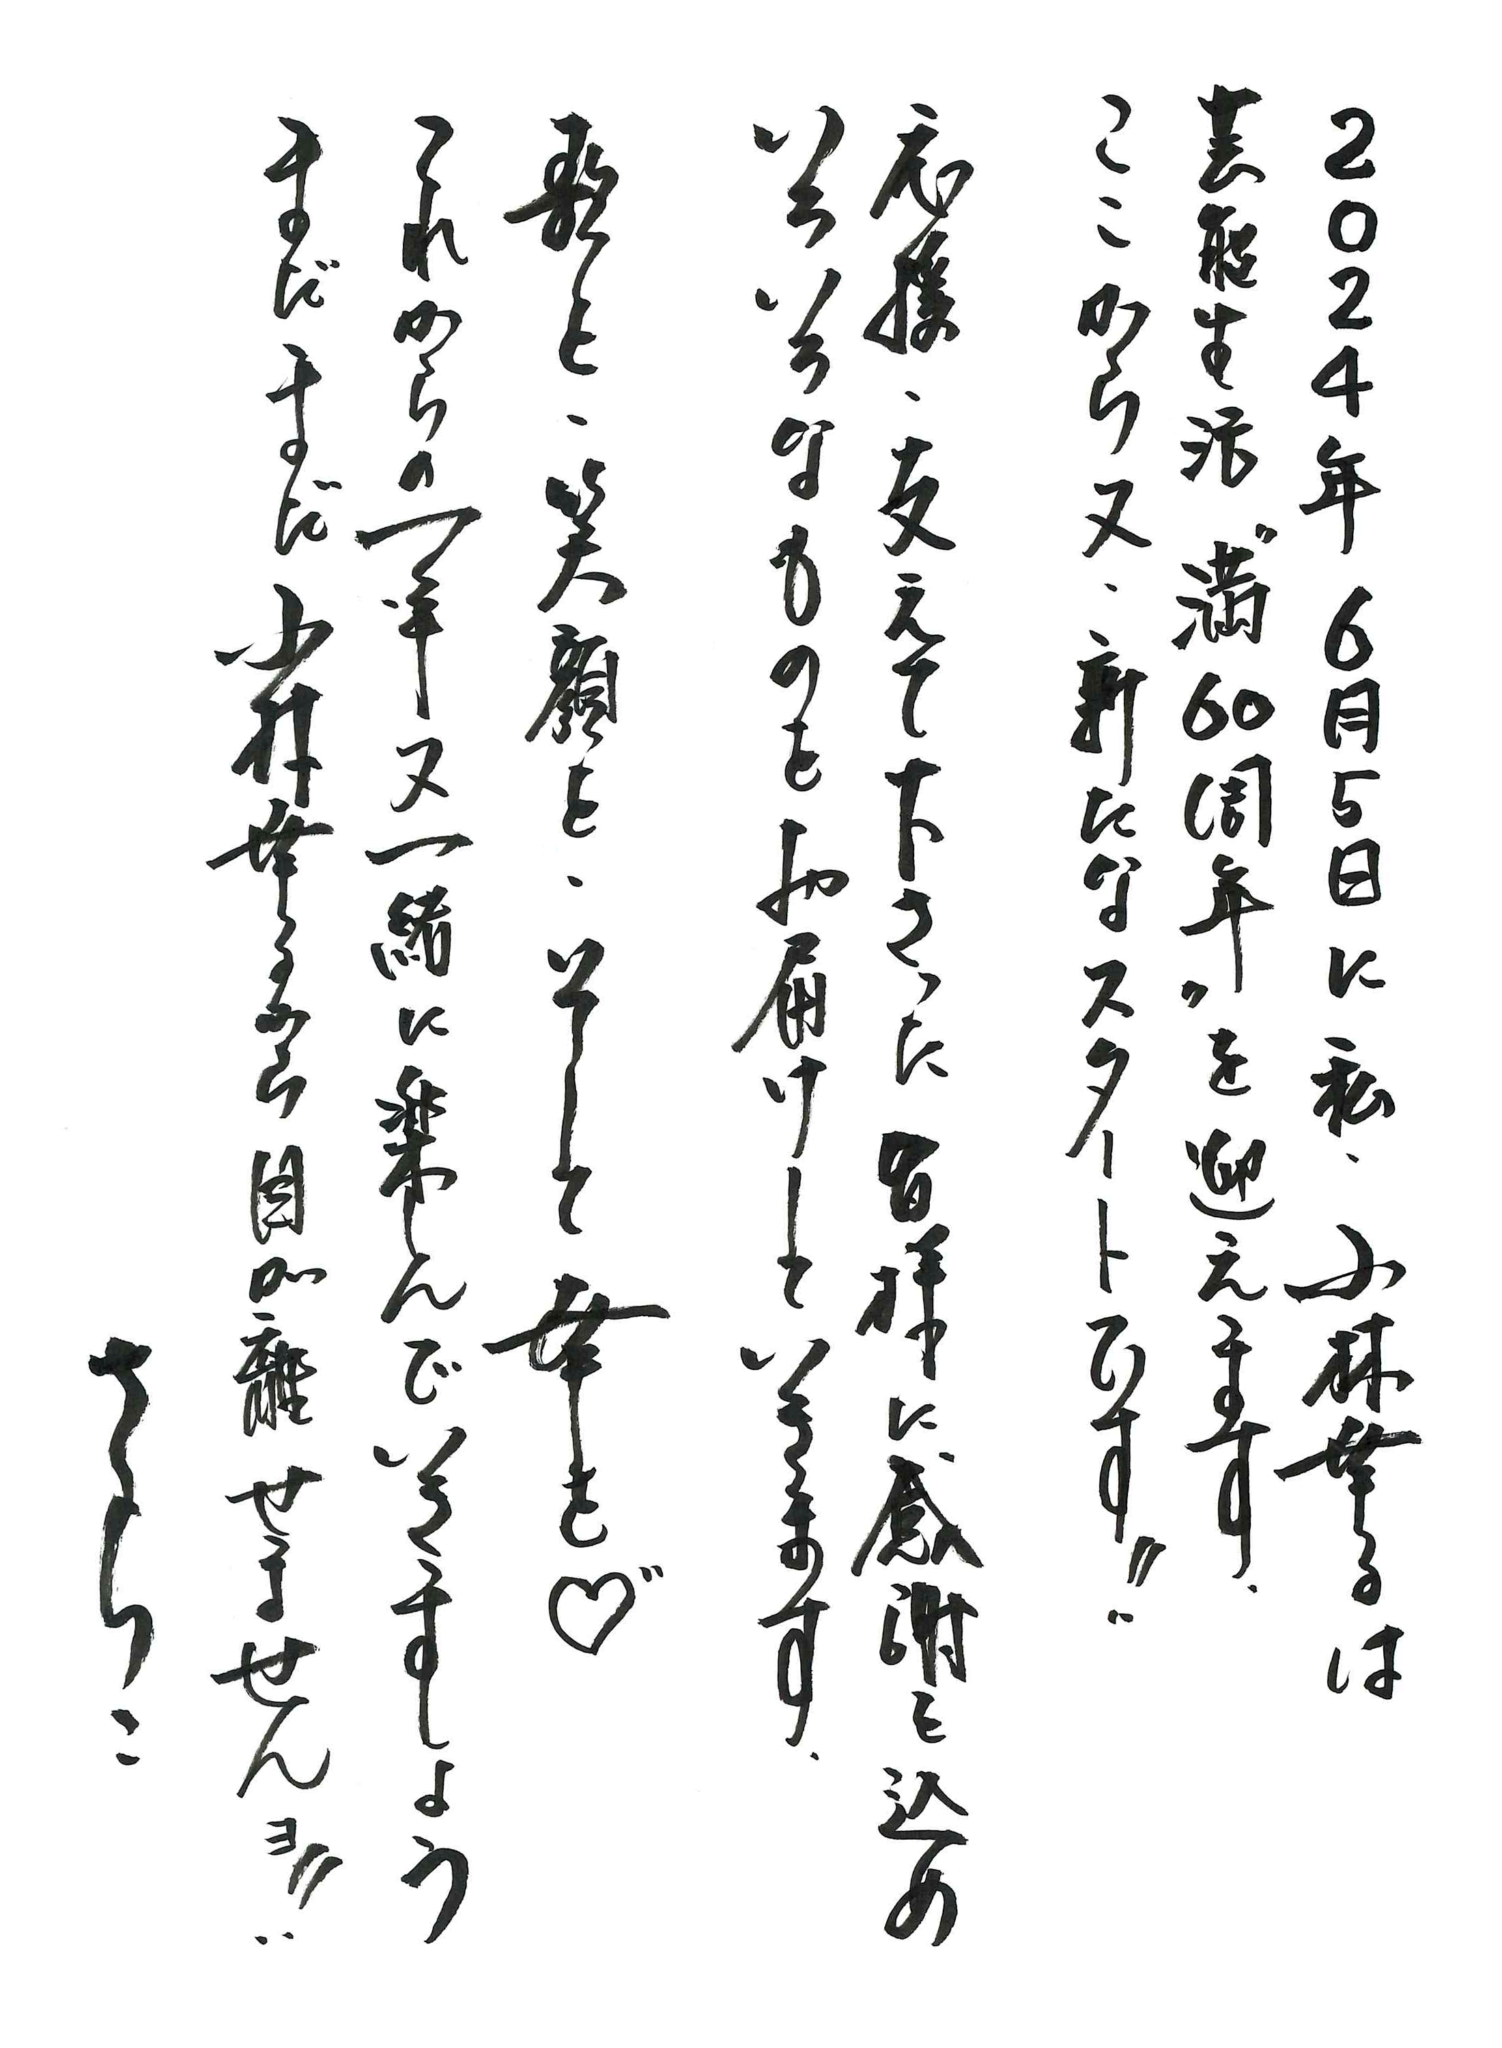 2024年 6月5日に 私、小林幸子は
芸能生活 “満60周年” を 迎えます、
ここから又、新たなスタートです!!
応援、支えて下さった 皆様に、感謝を込め
いろいろなものをお届けして いきます、
歌と、笑顔を、そして 幸を♡
これからの一年 又 一緒に楽しんで いきましょう
まだまだ 小林幸子から 目が離せませんヨ!!
さちこ